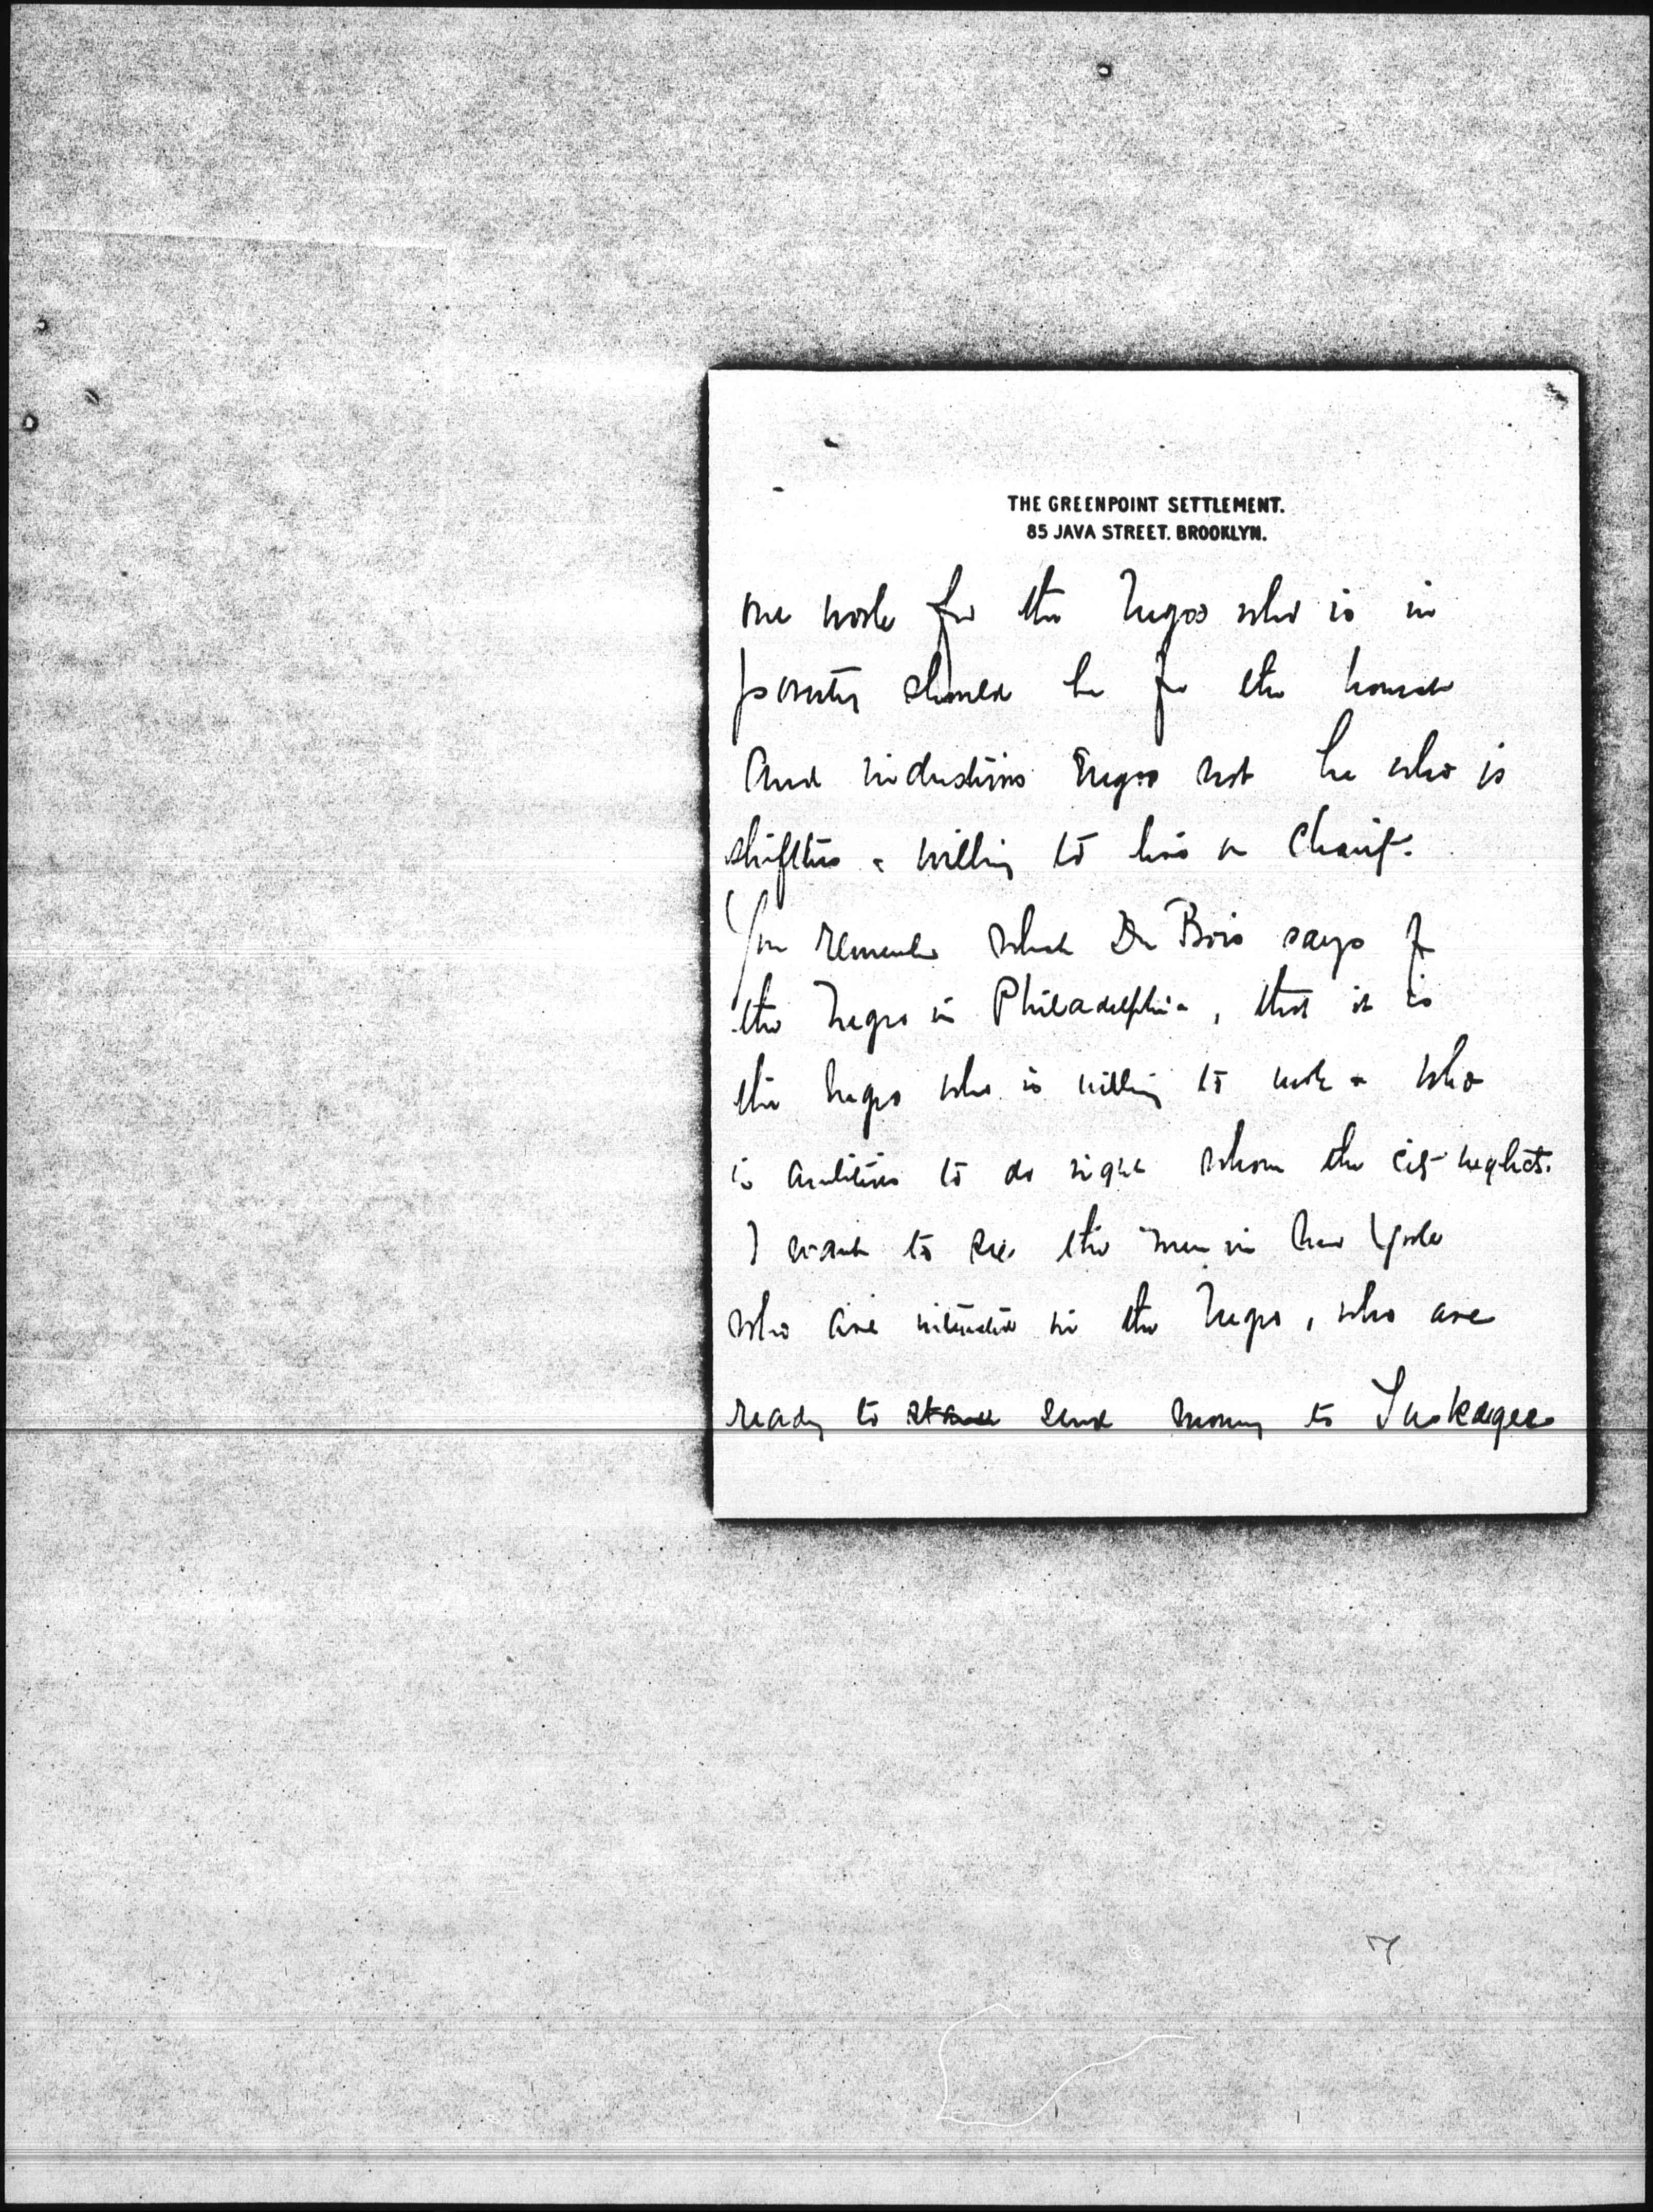 THE GREENPOINT SETTLEMENT.
85 JAVA STREET. BROOKLYN.
our work for the Negro who is in
poverty should be for the honest
and industrious Negro not he who is
shiftless & willing to live on charity.
You remember what Du Bois says of
the Negro in Philadelphia, that it is
the Negro who is willing to work & who
is ambitious to do right whom the city neglects.
I want to see the men in New York
who are interested in the Negro, who are
ready to send money to Tuskegee